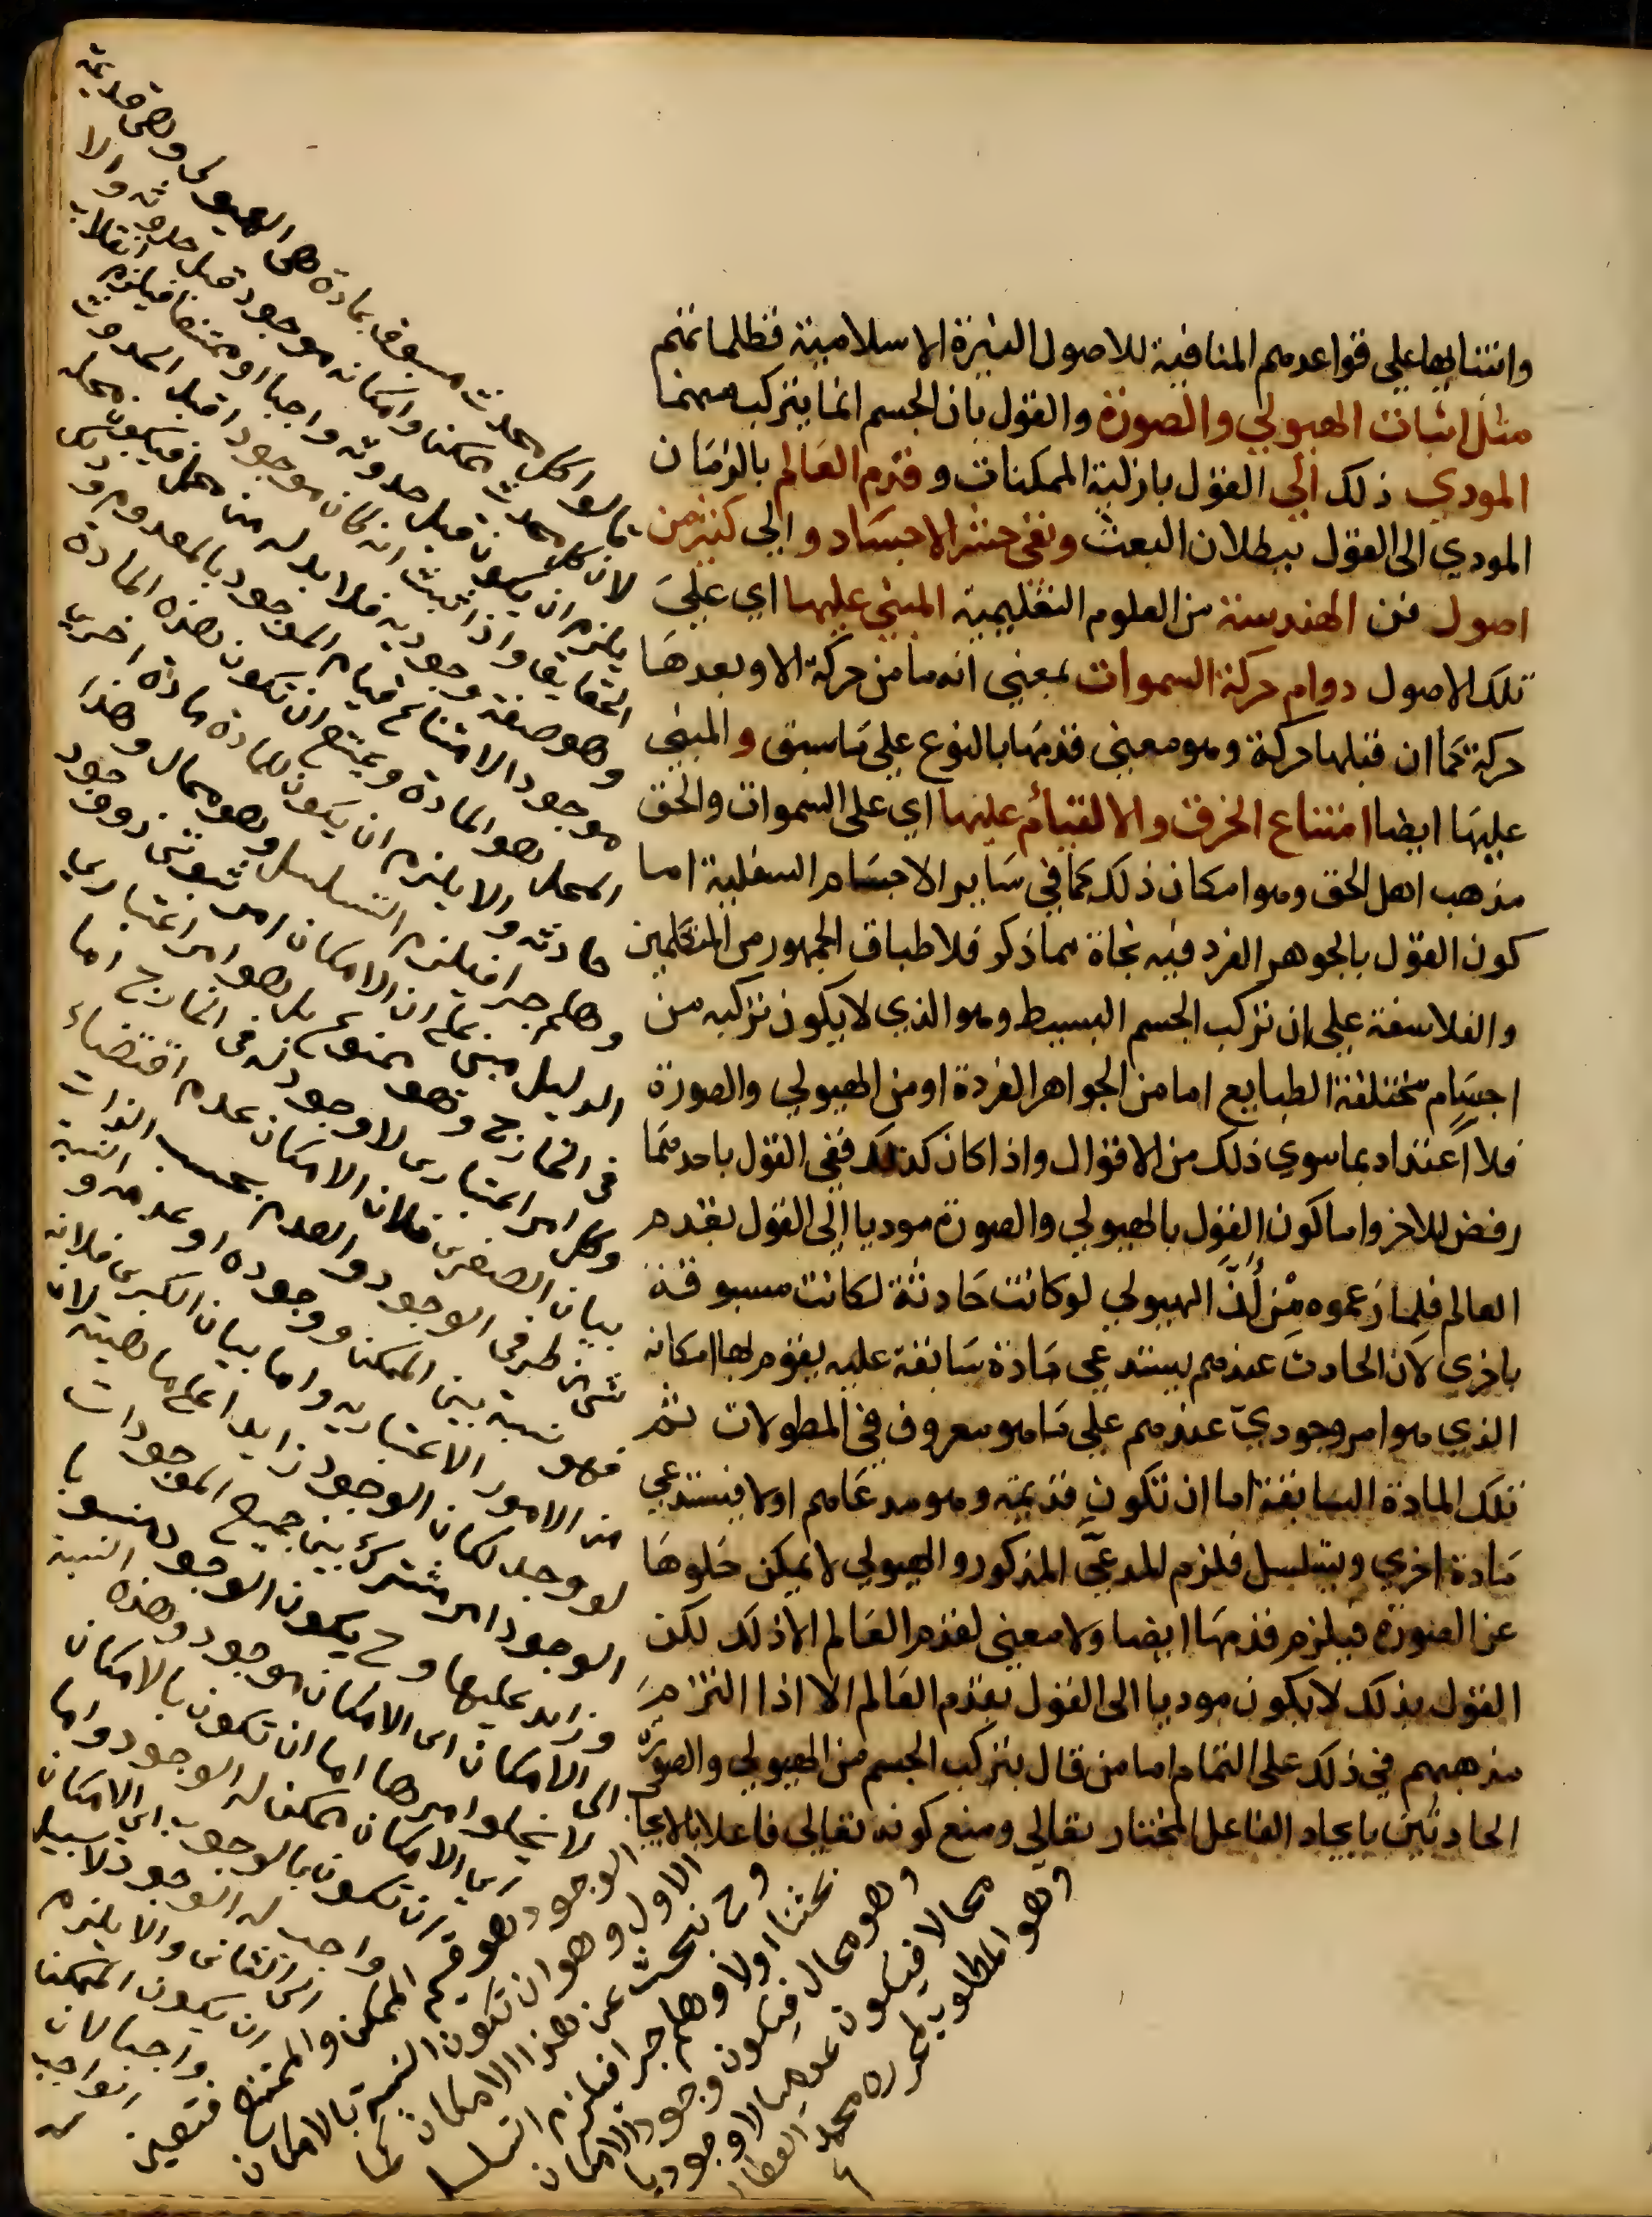 وابتنايها علي قواعدهم المنافية للاصول النيرة الاسلامية فظلماتهم
مثل اثبات الهيولي والصورة والقول بان الجسم انما يتركب منهما
المودي ذلك الي القول بازلية الممكنات وقدم العالم بالزمان
المودي الي القول ببطلان البعث ونفي حشر الاجساد والي كثير من
اصول فن الهندسة من العلوم التعليمية المبني عليها اي علي
تلك الاصول دوام حركة السموات بمعني انه ما من حركة الا وبعدها
حركة كما ان قبلها حركة وهو معني قدمها بالنوع علي ما سبق والمبني
عليها ايضا امتناع الخرق والالتيام عليها اي علي السموات والحق
مذهب اهل الحق وهو امكان ذلك كما في ساير الاجسام السفلية اما
كون القول بالجوهر الفرد فيه نجاة مما ذكر فلاطباق الجمهور من المتكلمين
والفلاسفة علي ان تركب الجسم البسيط وهو الذي لا يكون تركبه من
اجسام مختلفة الطبايع اما من الجواهر الفردة او من الهيولي والصورة
فلا اعتداد بما سوي ذلك من الاقوال واذا كان كذلك ففي القول باحدهما
رفض للاخر واما كون القول بالهيولي والصورة موديا الي القول بقدم
العالم فلما زعموه من ان الهيولي لو كانت حادثة لكانت مسبوقة
باخري لان الحادث عندهم يستدعي مادة سابقة عليه يقوم بها امكانه
الذي هو امر وجودي عندهم علي ما هو معروف في المطولات ثم
تلك المادة السابقة اما ان تكون قديمة وهو مدعاهم او لا فيستدعي
مادة اخري ويتسلسل فلزم المدعي المذكور والهيولي لا يمكن خلوها
عن الصورة فيلزم قدمها ايضا ولا معني لقدم العالم الا ذلك لكن
القول بذلك لا يكون موديا الي القول بقدم العالم الا اذا التزم
مذهبهم في ذلك علي التمام اما من قال بتركب الجسم من الهيولي والصورة
الحادثين بايجاد الفاعل المختار تعالي ومنع كونه تعالي فاعلا بالايجاب
قالوا كل محدث مسبوق بمادة هي الهيولي وهي قديمة
لان كل محدث ممكن وامكانه موجود قبل حدوثه والا
يلزم ان يكون قبل حدوثه واجبا او ممتنعا فيلزم انقلاب
الحقايق واذا ثبت انه كان موجودا قبل الحدوث
وهو صفة وجودية فلا بد له من محل فيكون محله
موجودا لامتناع قيام الموجود بالمعدوم وذلك
المحل هو المادة ويمتنع ان تكون هذه المادة
حادثة والا يلزم ان يكون للمادة مادة اخري
وهلم جرا فيلزم التسلسل وهو محال وهذا
الدليل مبني علي ان الامكان امر ثبوتي ذو وجود
في الخارج وهو ممنوع بل هو امر اعتباري
وكل امر اعتباري لا وجود له في الخارج اما
بيان الصغري فلان الامكان عدم اقتضاء
شي من طرفي الوجود والعدم بحسب الذات
فهو نسبة بين الممكن ووجوده او عدمه والنسبة
من الامور الاعتبارية واما بيان الكبري فلانه
لو وجد لكان الوجود زايدا علي ماهيته لان
الوجود امر مشترك بين جميع الموجودات
وزايد عليها وح يكون الوجود منسوبا
الي الامكان اي الامكان موجود وهذه النسبة
لا يخلوا امرها اما ان تكون بالامكان
اي الامكان ممكن له الوجود واما
ان تكون بالوجوب اي الامكان
واجب له الوجود لا سبيل
الي الثاني والا يلزم
ان يكون الممكن
واجبا لان
الواجب
الوجود وهو قسيم الممكن والممتنع فتعين
الاول وهو ان تكون النسبة بالامكان
وح نبحث عن هذا الامكان كما
بحثنا اولا وهلم جرا فيلزم التسلسل
وهو محال فيكون وجود الامكان
محالا فيكون عدميا لا وجوديا
وهو المطلوب لمحرره محمد العطار